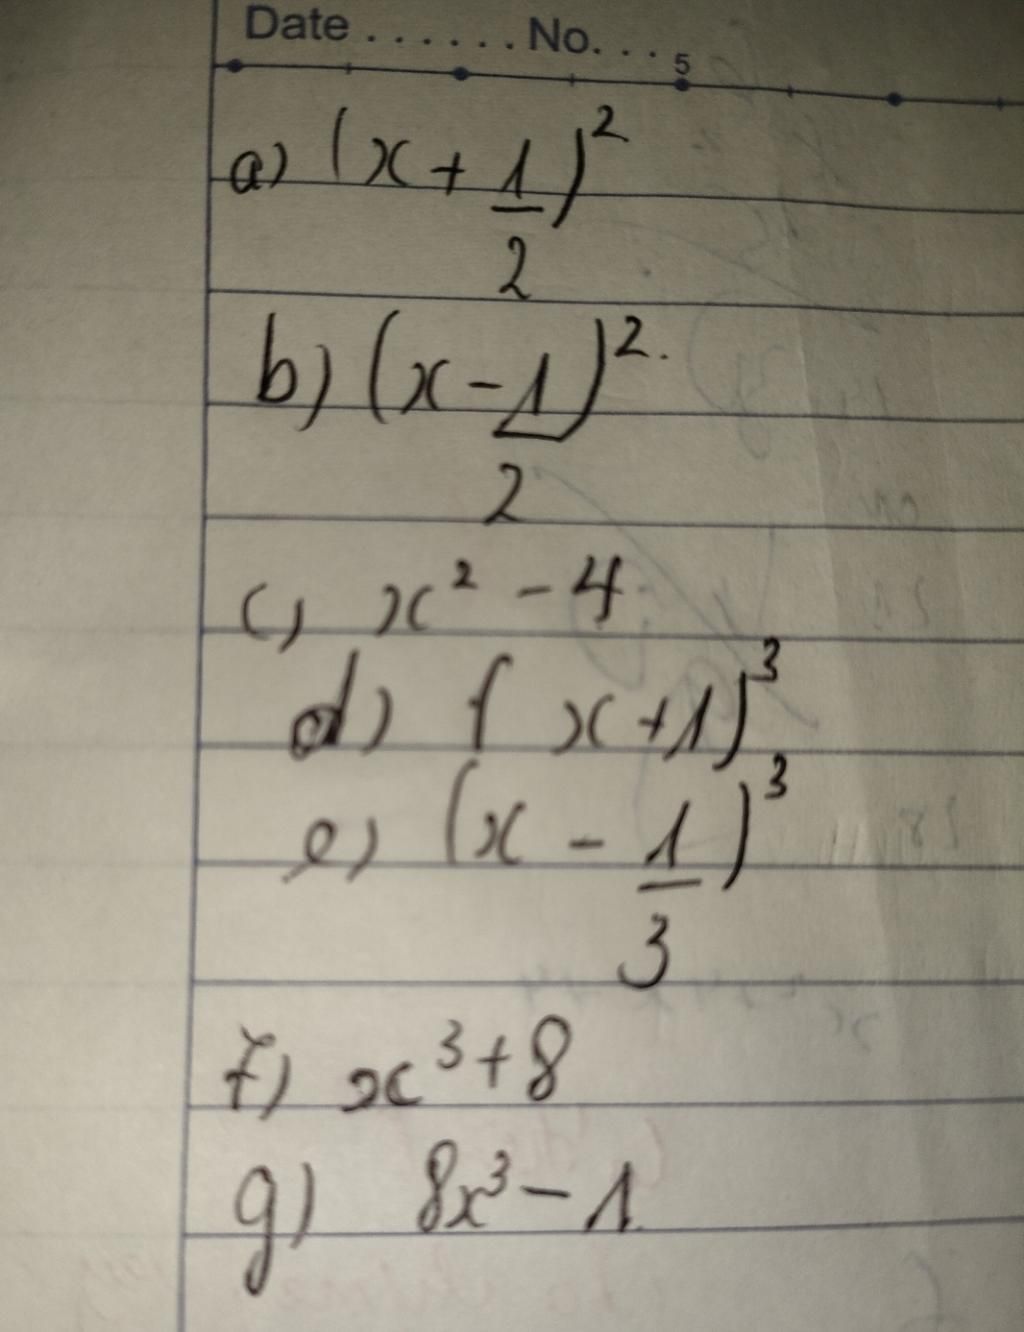 Date ...... No. ...
5
a) (x + 1/2)²
b) (x - 1/2)².
c) x² - 4
d) (x + 1)³
e) (x - 1/3)³
f) x³ + 8
g) 8x³ - 1